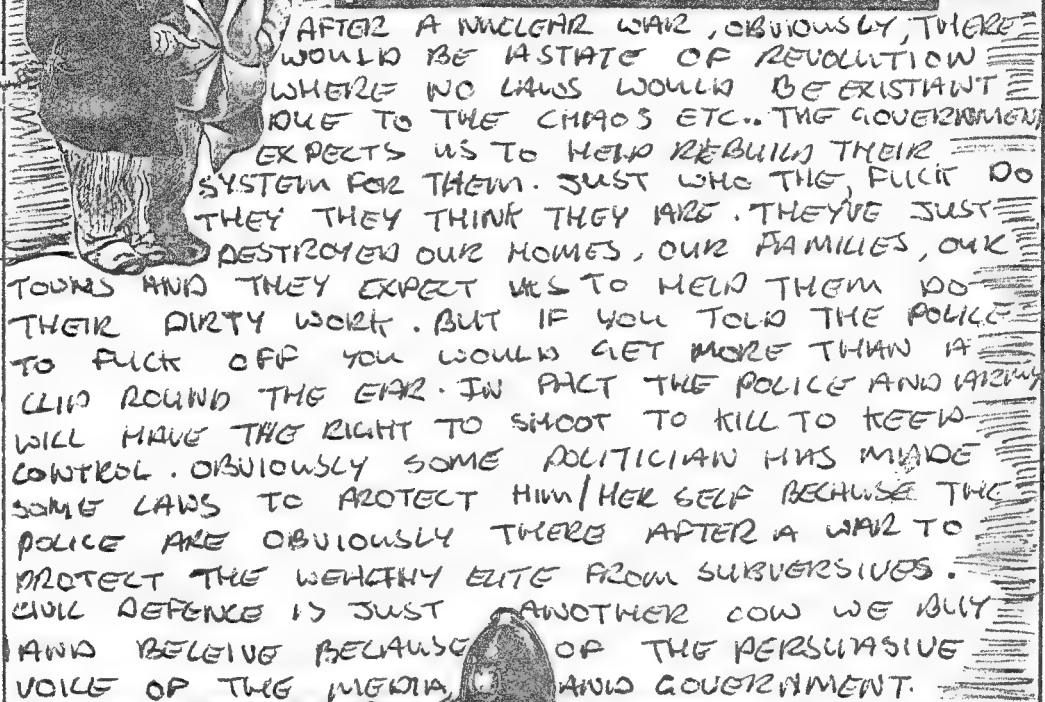 AFTER A NUCLEAR WAR, OBVIOUSLY, THERE
WOULD BE A STATE OF REVOLUTION
WHERE NO LAWS WOULD BE EXISTIANT
DUE TO THE CHAOS ETC.. THE GOVERNMENT
EXPECTS US TO HELP REBUILD THEIR
SYSTEM FOR THEM. JUST WHO THE, FUCK DO
THEY THEY THINK THEY ARE. THEYVE JUST
DESTROYED OUR HOMES, OUR FAMILIES, OUR
TOWNS AND THEY EXPECT US TO HELP THEM DO
THEIR DIRTY WORK. BUT IF YOU TOLD THE POLICE
TO FUCK OFF YOU WOULD GET MORE THAN A
CLIP ROUND THE EAR. IN FACT THE POLICE AND ARMY
WILL HAVE THE RIGHT TO SHOOT TO KILL TO KEEP
CONTROL. OBVIOUSLY SOME POLITICIAN HAS MADE
SOME LAWS TO PROTECT HIM/HER SELF BECAUSE THE
POLICE ARE OBVIOUSLY THERE AFTER A WAR TO
PROTECT THE WEALTHY ELITE FROM SUBVERSIVES.
CIVIL DEFENCE IS JUST ANOTHER COW WE BUY
AND BELEIVE BECAUSE OF THE PERSUASIVE
VOICE OF THE MEDIA AND GOVERNMENT.